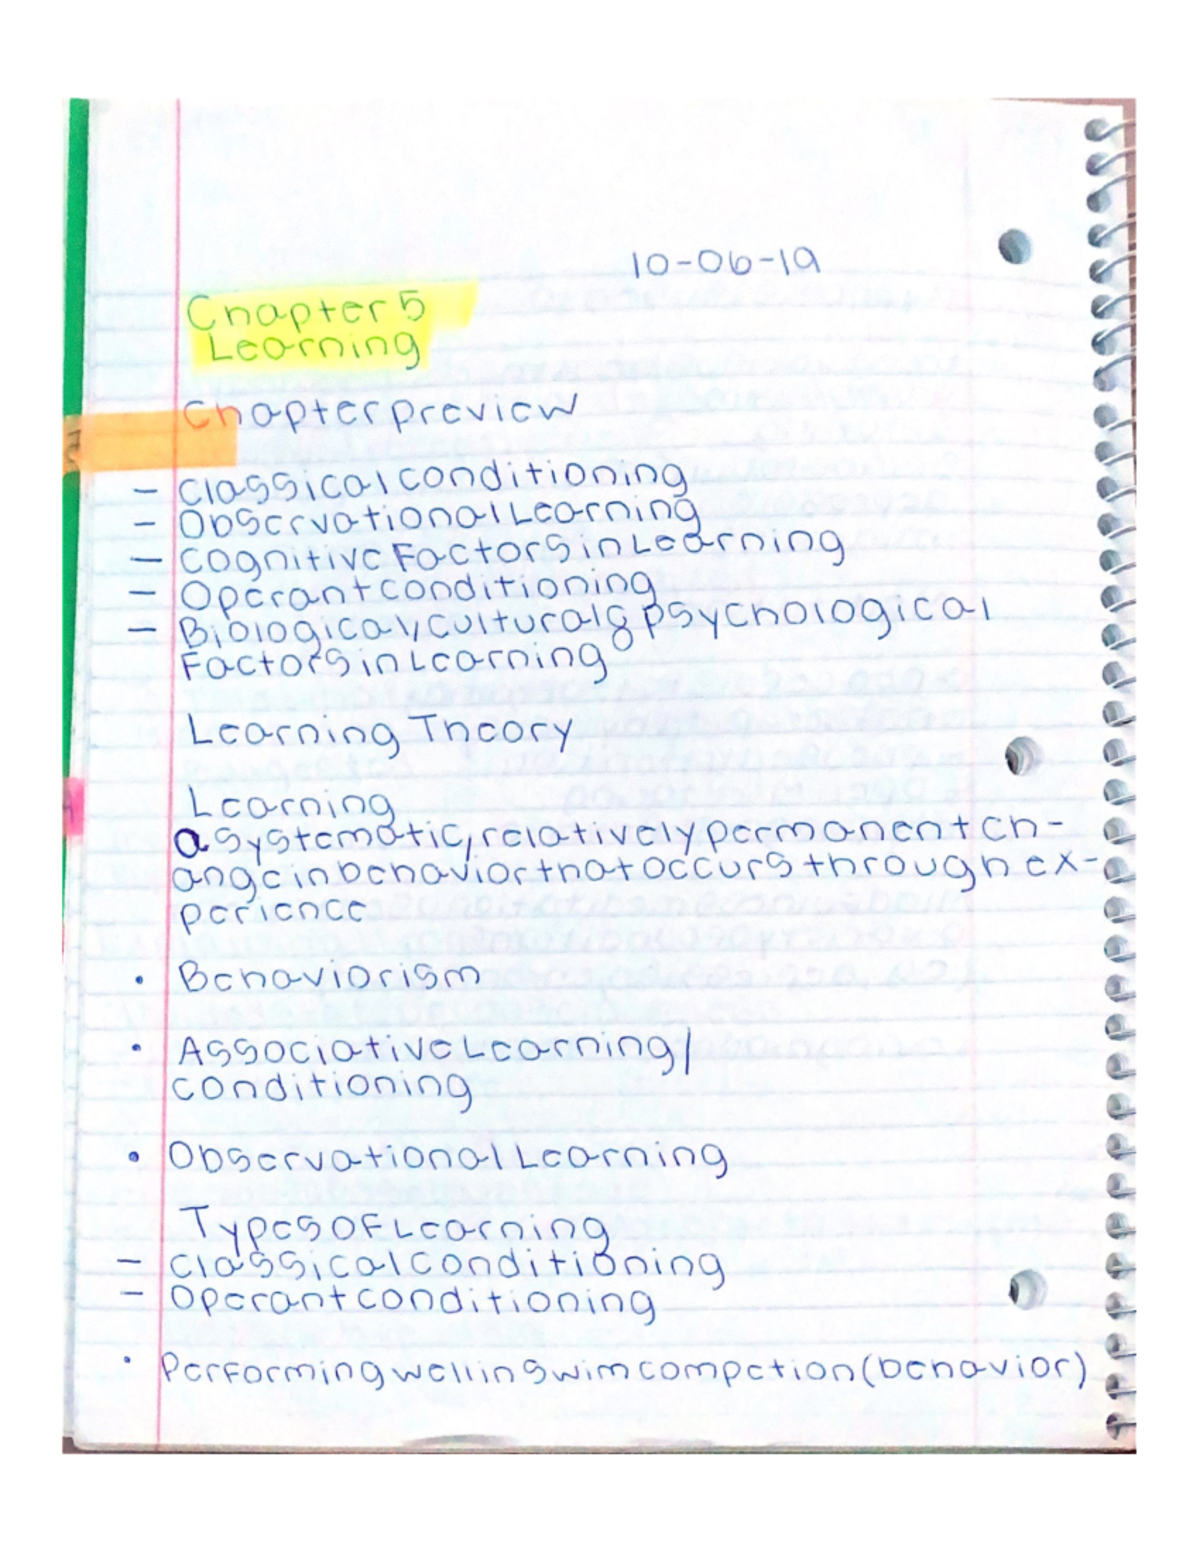 10-06-19
Chapter 5
Learning
Chapter preview
- Classical conditioning
- Observational Learning
- Cognitive Factors in Learning
- Operant conditioning
- Biological, cultural & psychological
Factors in Learning
Learning Theory
Learning
a systematic, relatively permanent ch-
ange in behavior that occurs through ex-
perience
• Behaviorism
• Associative Learning/
conditioning
• Observational Learning
Types OF Learning
- Classical conditioning
- Operant conditioning
• Performing well in swim compction (behavior)